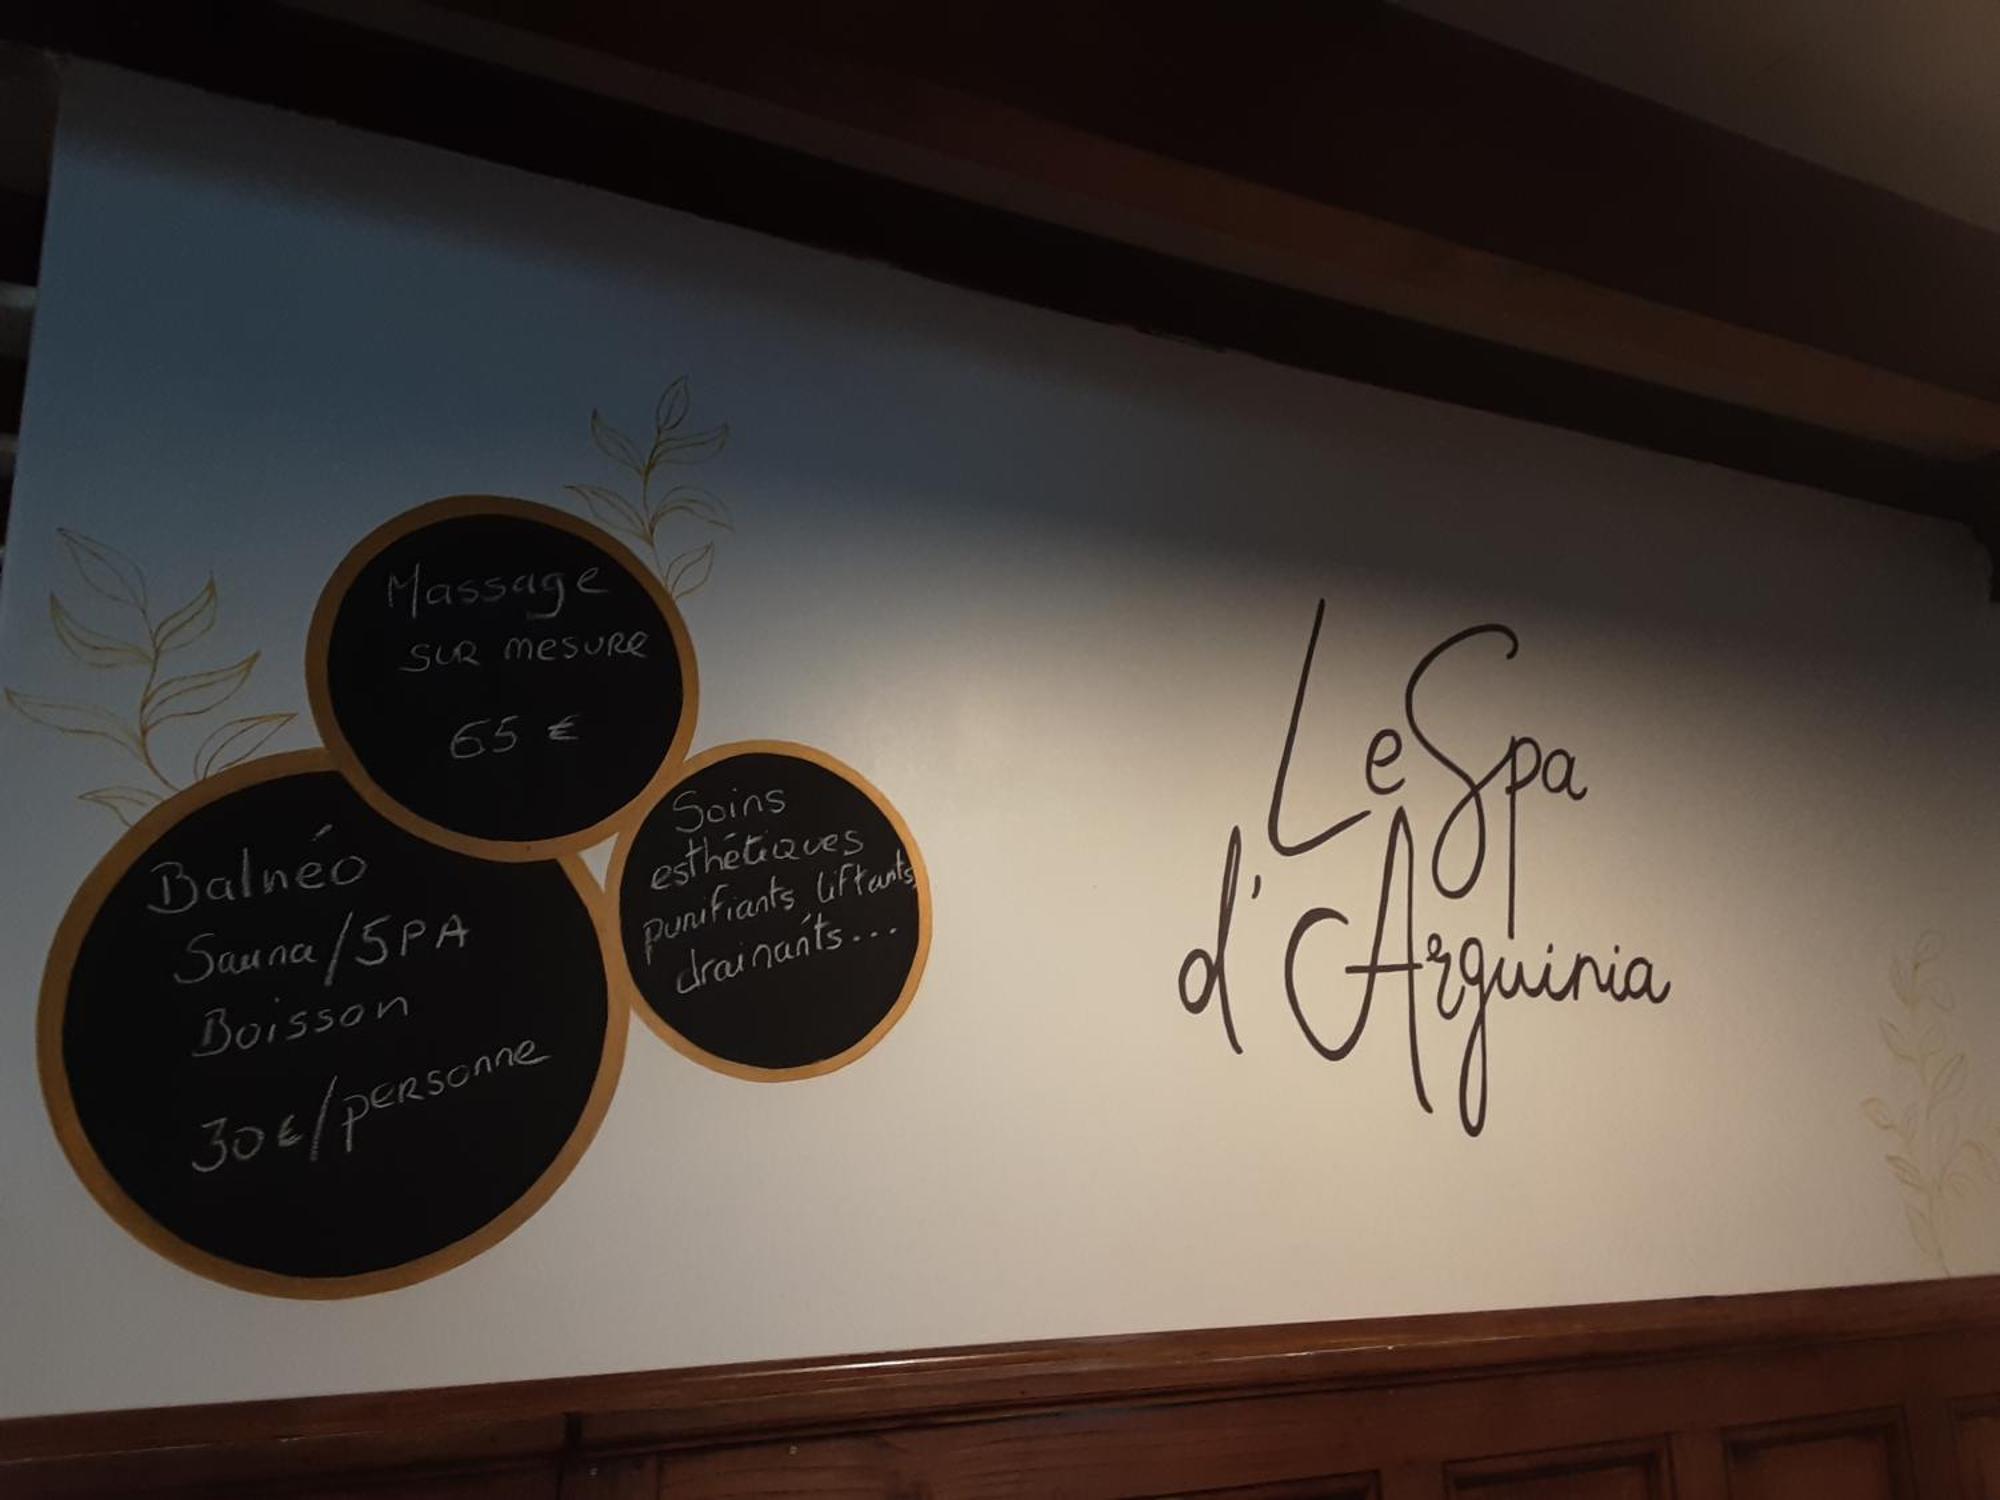 Massage
SUR mesure
65 €
Balnéo
Sauna/SPA
Boisson
30€/personne
Soins
esthétiques
purifiants, liftants,
drainants...
Le Spa
d'Arguinia